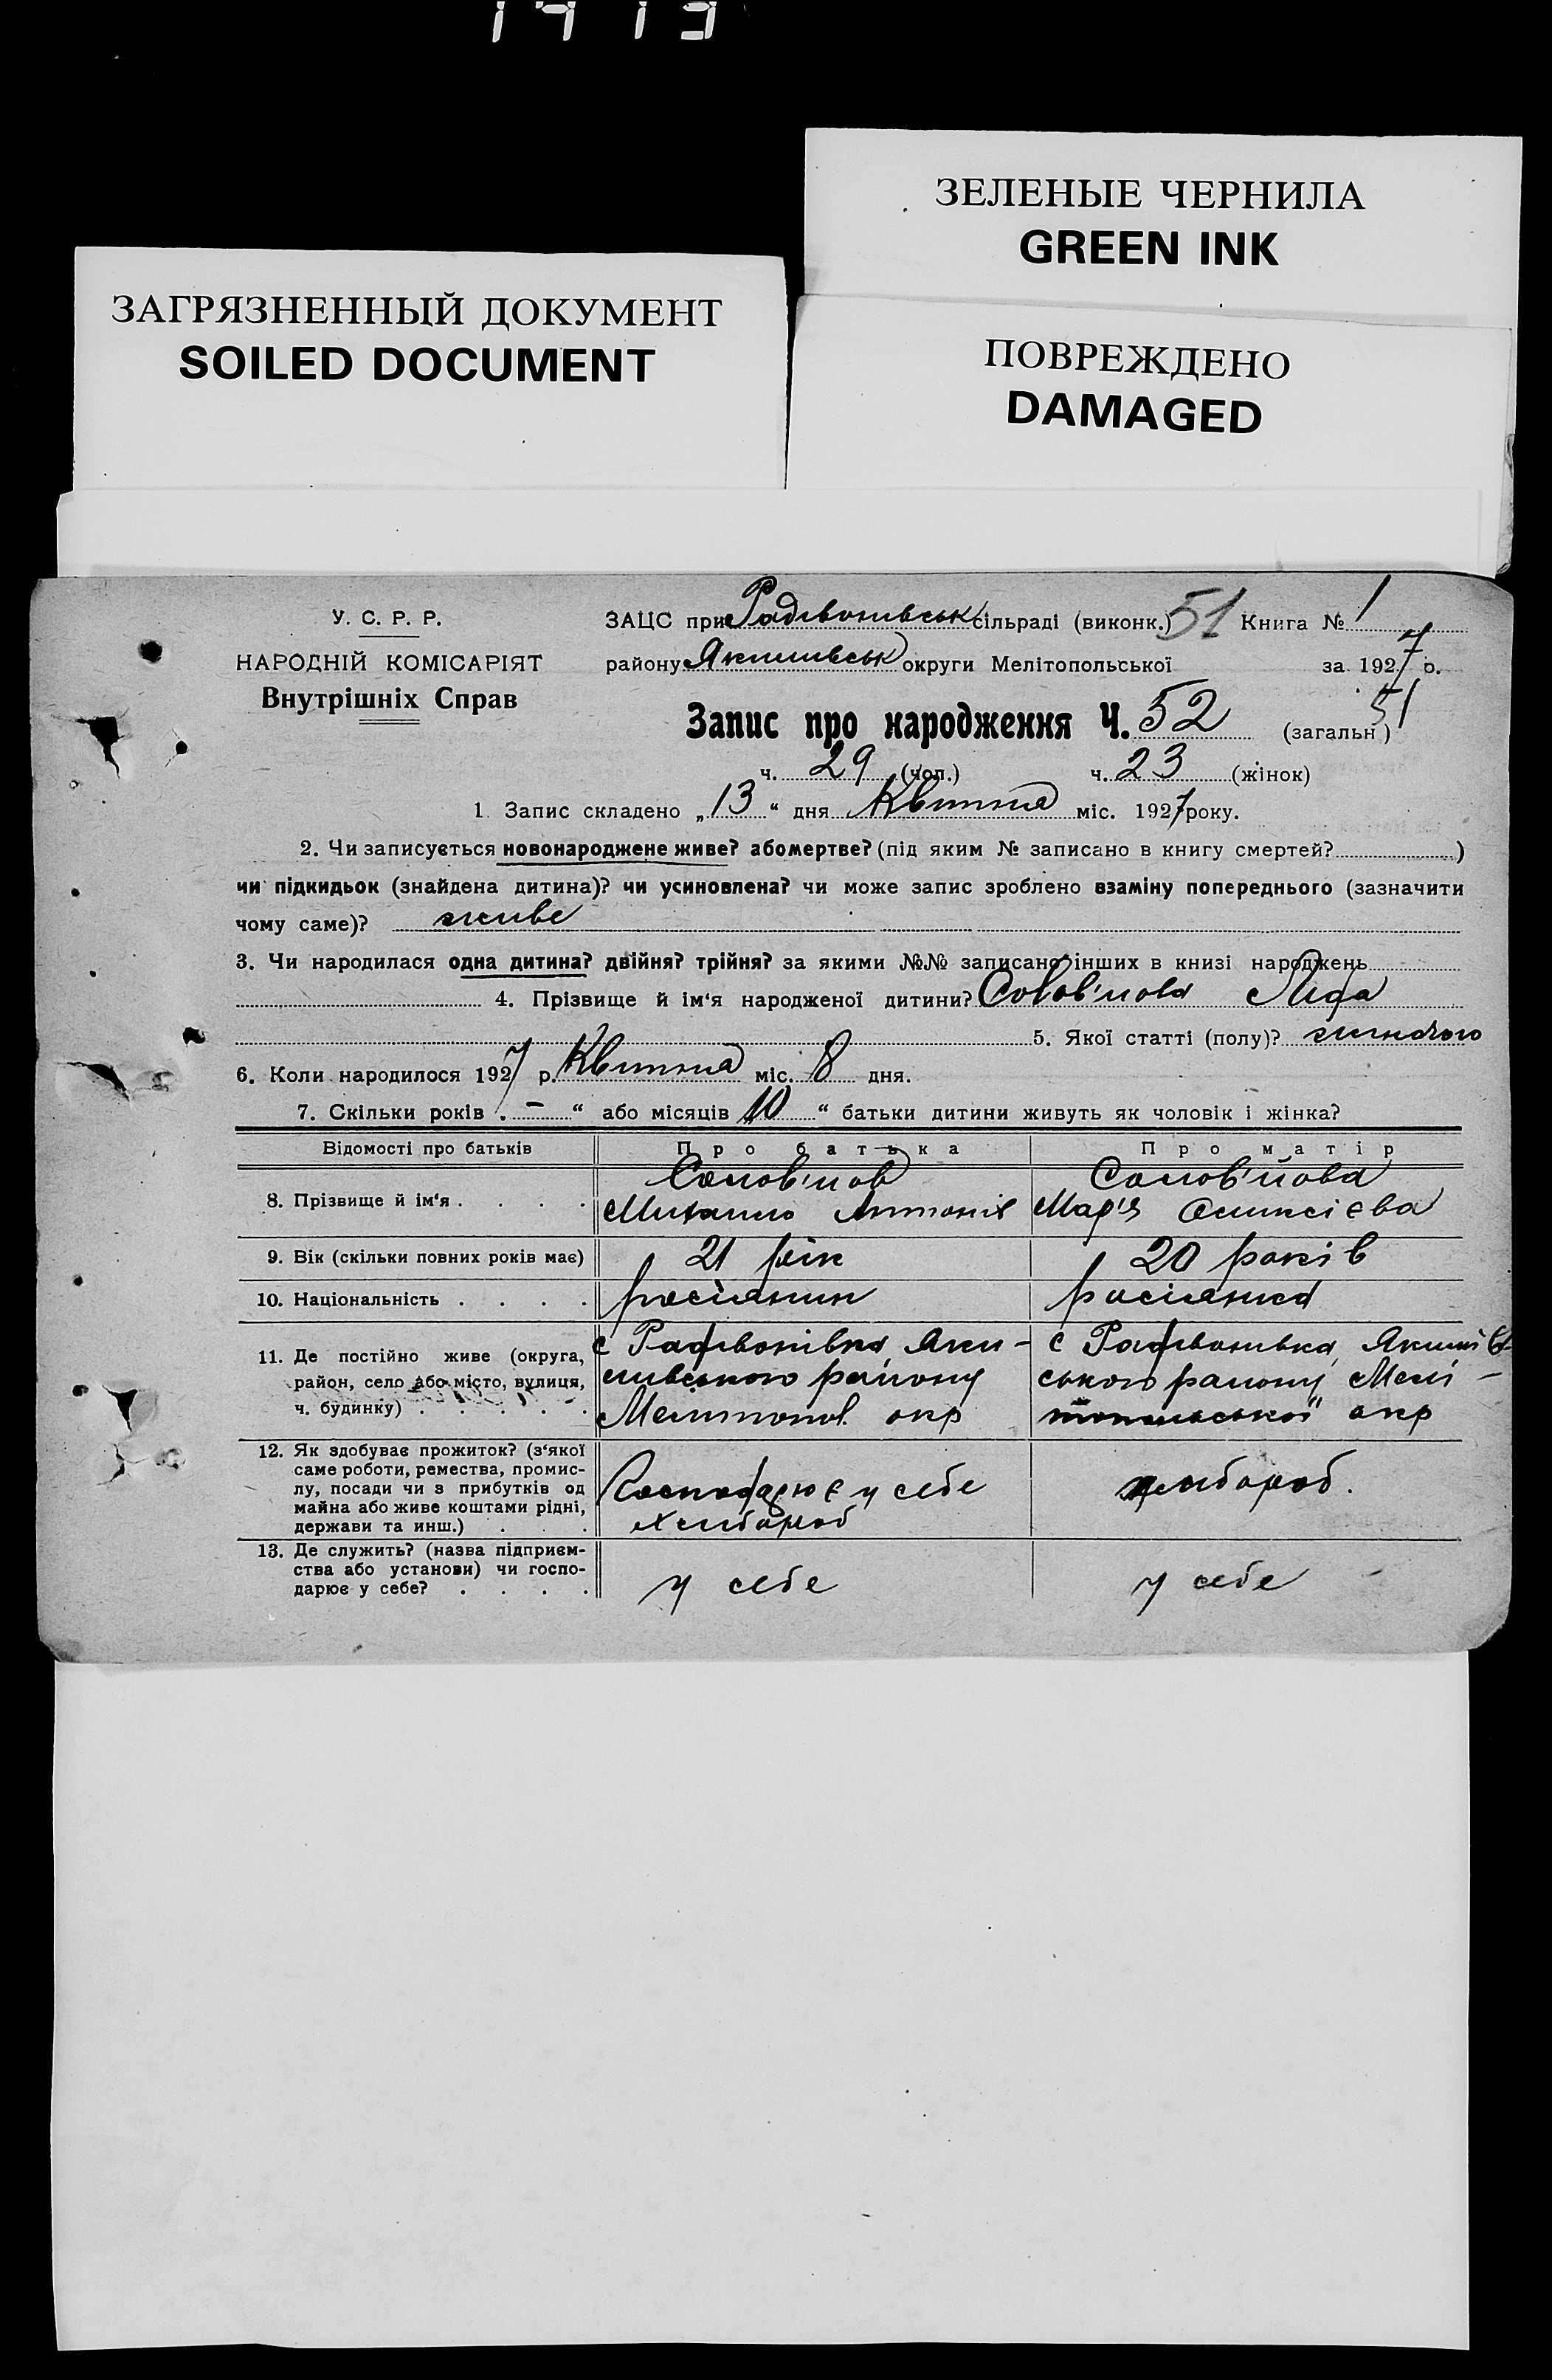 1413
ЗЕЛЕНЫЕ ЧЕРНИЛА
GREEN INK
ЗАГРЯЗНЕННЫЙ ДОКУМЕНТ
SOILED DOCUMENT
ПОВРЕЖДЕНО
DAMAGED
У. С. Р. Р.
НАРОДНІЙ КОМІСАРІЯТ
Внутрішніх Справ
ЗАЦС при Радівонівськ сільраді (виконк.) 51 Книга № 1
району Якимівськ округи Мелітопольської за 1927 р.
Запис про народження Ч. 52 (загальн) 51
ч. 29 (чол.) ч. 23 (жінок)
1. Запис складено „13“ дня Квитня міс. 1927 року.
2. Чи записується новонароджене живе? або мертве? (під яким № записано в книгу смертей? )
чи підкидьок (знайдена дитина)? чи усиновлена? чи може запис зроблено взаміну попереднього (зазначити
чому саме)? живе
3. Чи народилася одна дитина? двійня? трійня? за якими №№ записано інших в книзі народжень
4. Прізвище й ім‘я народженої дитини? Солов'йова Лида
5. Якої статті (полу)? жиночого
6. Коли народилося 1927 р. Квитня міс. 8 дня.
7. Скільки років . – “ або місяців 10 “ батьки дитини живуть як чоловік і жінка?
Відомості про батьків Про батька Про матір
8. Прізвище й ім‘я . . . . Солов'йов Михаило Антонів Солов'йова Мар'я Оликсієва
9. Вік (скільки повних років має) 21 рік 20 років
10. Національність . . . . росіянин росіянка
11. Де постійно живе (округа, район, село або місто, вулиця, ч. будинку) . . . . . с Радивонівка Яки- мивського району Мелитопол. окр с Радивонивка Якимів- ського району Мелі- топольської окр
12. Як здобуває прожиток? (з‘якої саме роботи, ремества, промис- лу, посади чи з прибутків од майна або живе коштами рідні, держави та инш.) . . . Господарює у себе хлибороб хлибороб.
13. Де служить? (назва підприєм- ства або установи) чи госпо- дарює у себе? . . . . у себе у себе